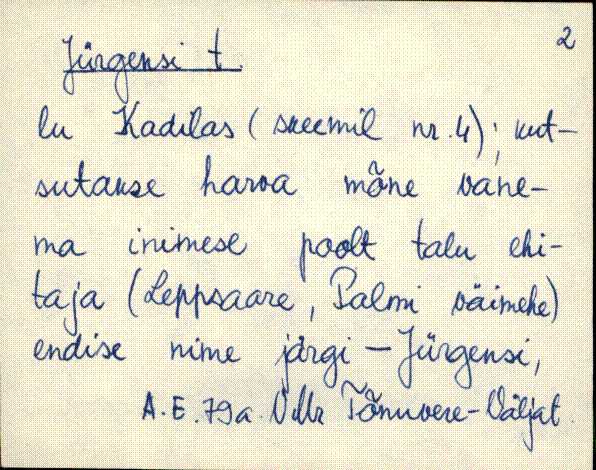 2
Jürgensi t.
lu Kadilas (skeemil nr. 4); kut-
sutakse harva mõne vane-
ma inimese poolt talu ehi-
taja (Leppsaare, Palmi väimehe)
endise nime järgi – Jürgensi,
A. E. 79a. Tõnuvere-Väljat.